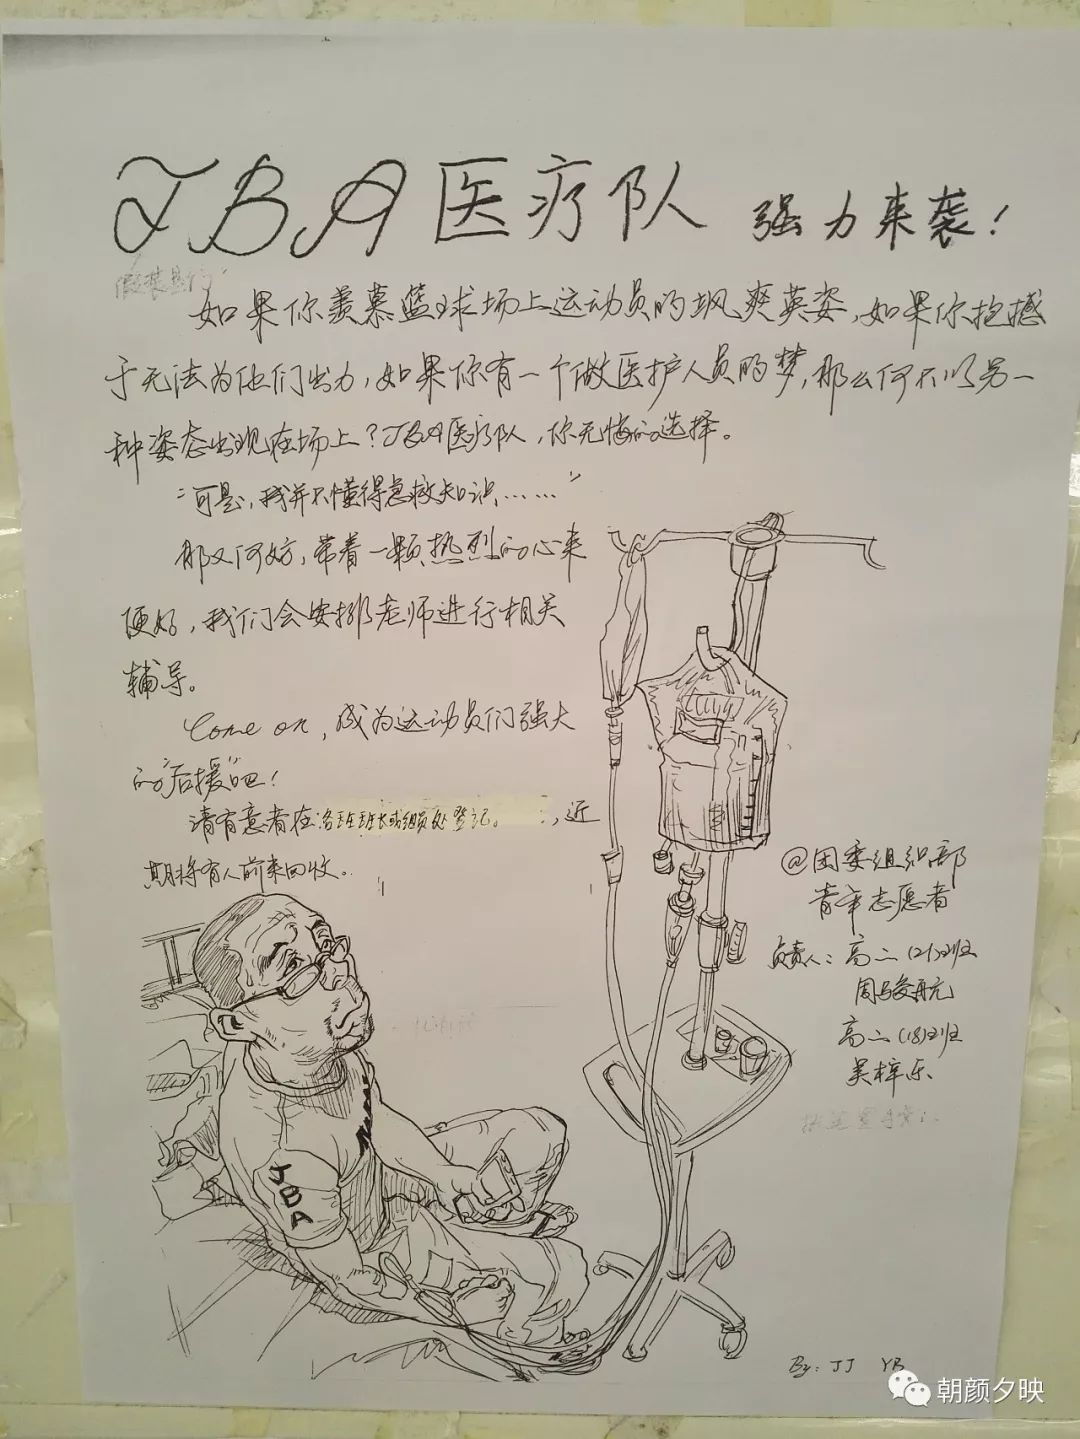 JBA医疗队 强力来袭！
如果你羡慕篮球场上运动员的飒爽英姿，如果你抱憾
于无法为他们出力，如果你有一个做医护人员的梦，那么何不以另一
种姿态出现在场上？JBA医疗队，你无悔的选择。
“可是，我并不懂得急救知识……”
那又何妨，带着一颗热烈的心来
便好，我们会安排老师进行相关
辅导。
Come on，成为运动员们强大
的“后援”吧！
请有意者在各班班长或组员处登记。，近
期将有人前来回收。
@团委组织部
青年志愿者
负责人：高二（21）班
周骏再元
高二（18）班
吴梓乐
JBA
By: JJ YB
朝颜夕映